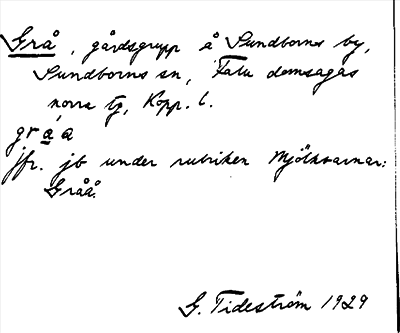 Grå, gårdsgrupp å Sundborns by,
Sundborns sn, Falu domsagas
norra tg, Kopp. l.
grå̀a
jfr. jb under rubriken Mjölkvarnar:
Gråå.
G. Tideström 1929